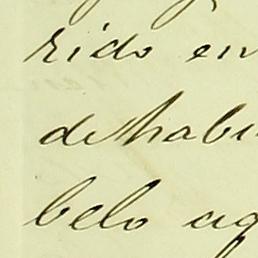 rido en
de habi
belo aq